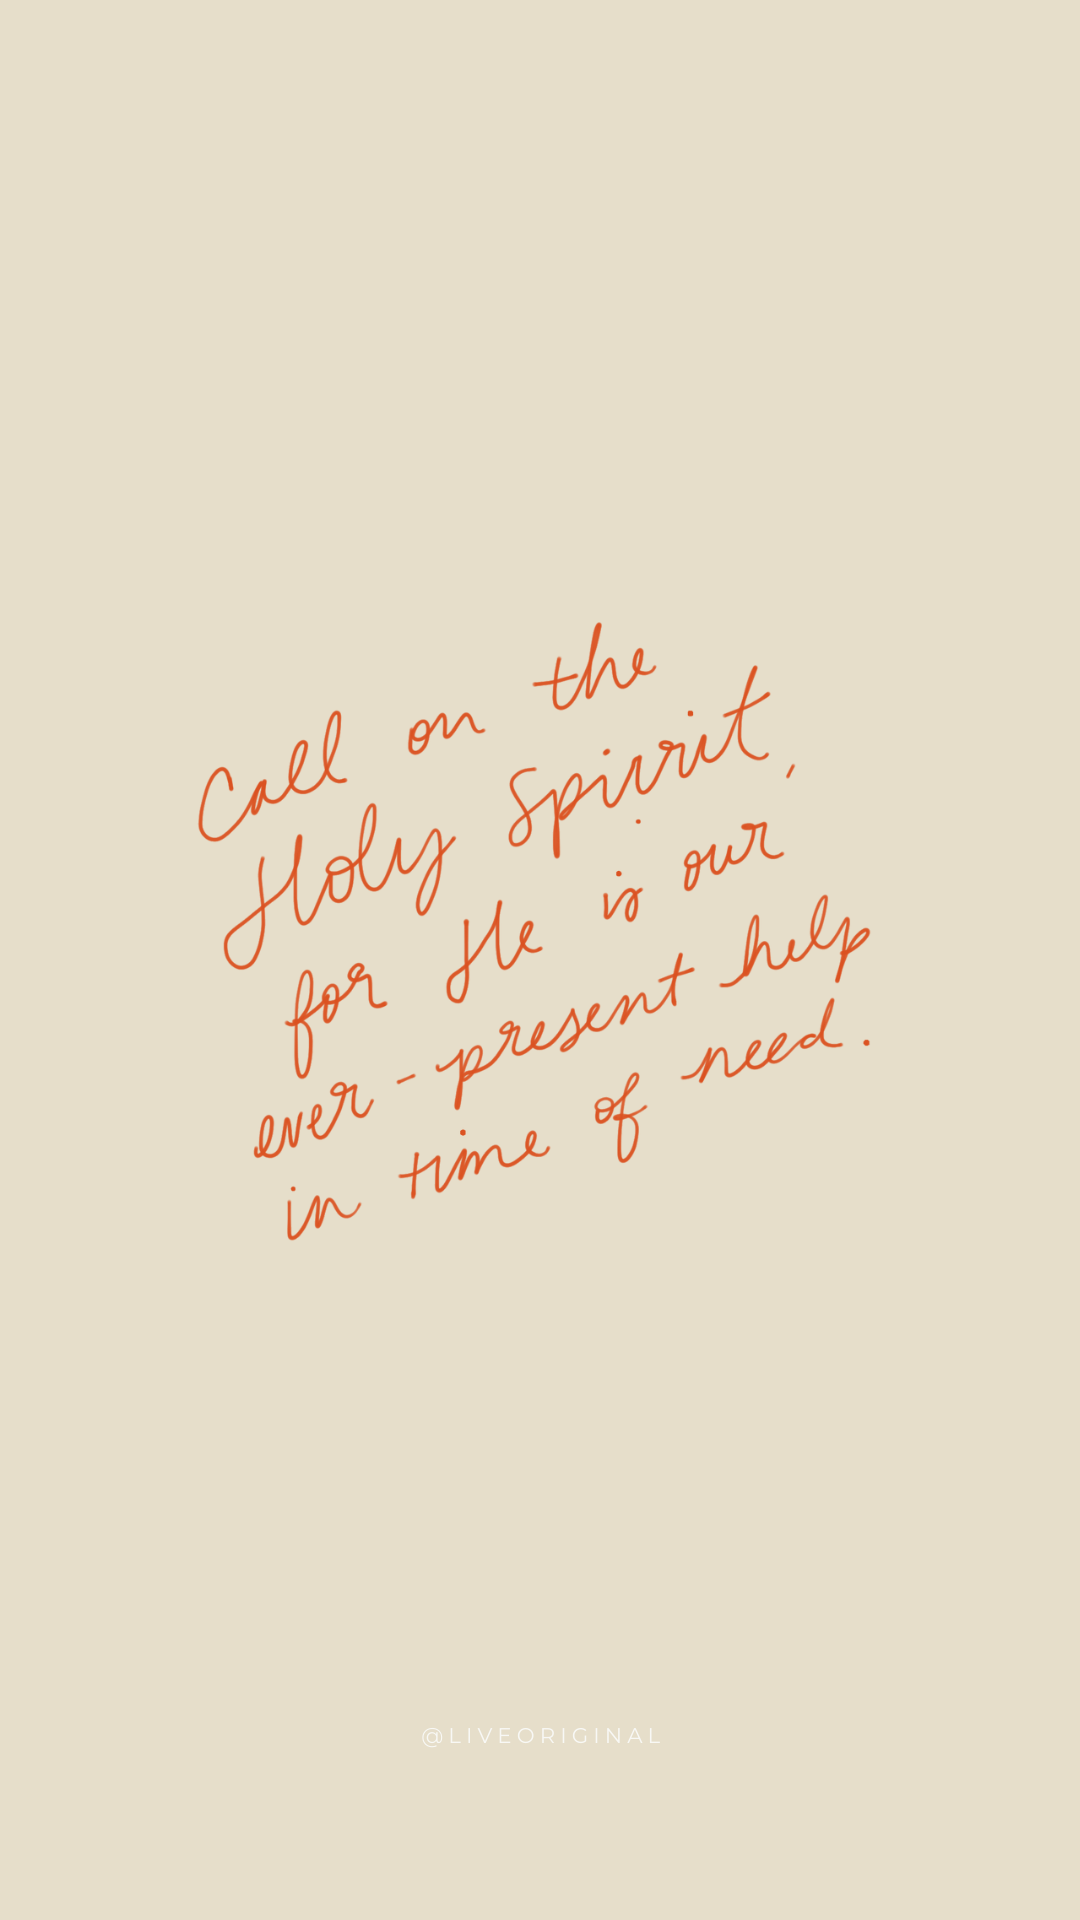 Call on the
Holy Spirit,
for He is our
ever-present help
in time of need.
@LIVEORIGINAL